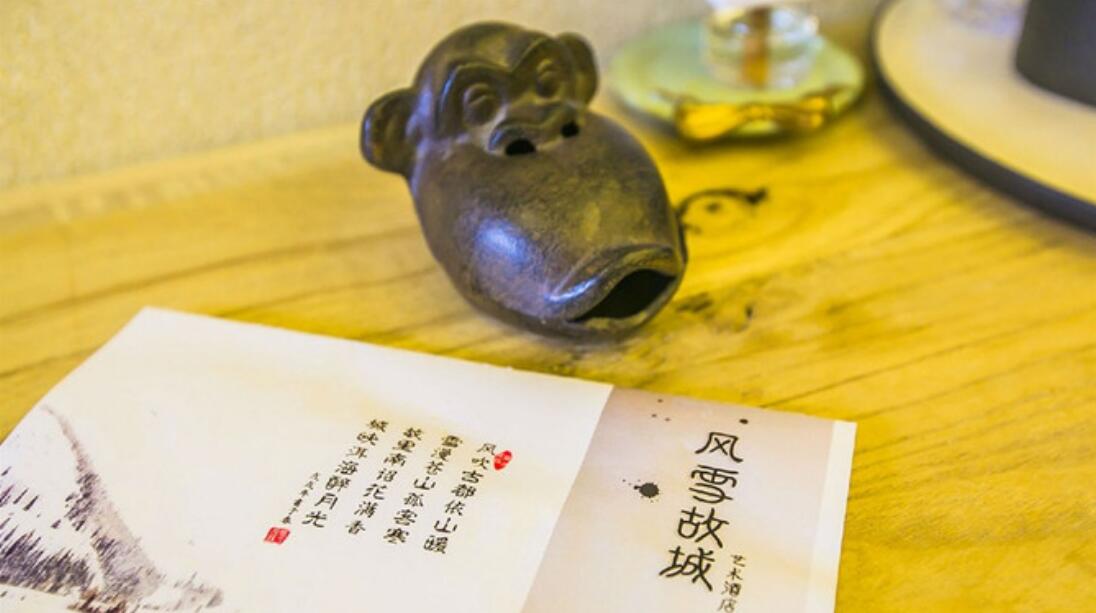 风雪故城
艺术酒店
风吹古都依山暖
雪漫苍山孤客寒
故里南诏花满香
城映洱海醉月光